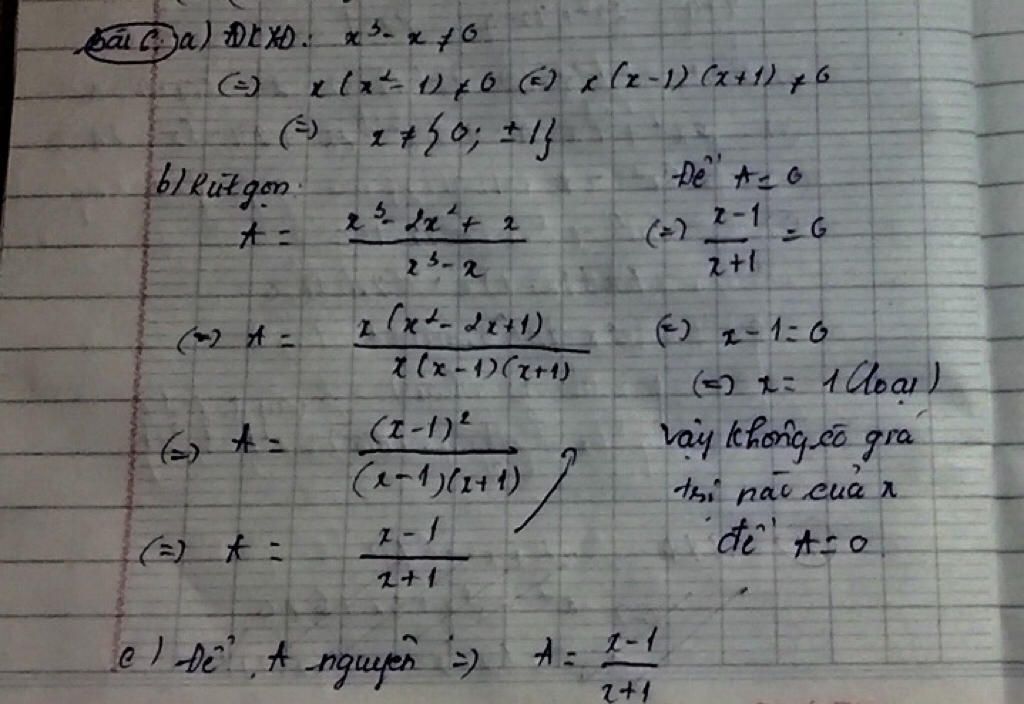 Bài C. a) ĐKXĐ: x³ - x ≠ 0
(=) x(x² - 1) ≠ 0 (=) x(x-1)(x+1) ≠ 0
(=) x ≠ {0; ±1}
b) Rút gọn:
A = (x³ - 2x² + x)/(x³ - x)
(=) A = x(x² - 2x + 1)/x(x-1)(x+1)
(=) A = (x-1)²/(x-1)(x+1)
(=) A = (x-1)/(x+1)
Để A = 0
(=) (x-1)/(x+1) = 0
(=) x - 1 = 0
(=) x = 1 (loại)
vậy không có giá
trị nào của x
để A = 0
c) Để A nguyên => A = (x-1)/(x+1)